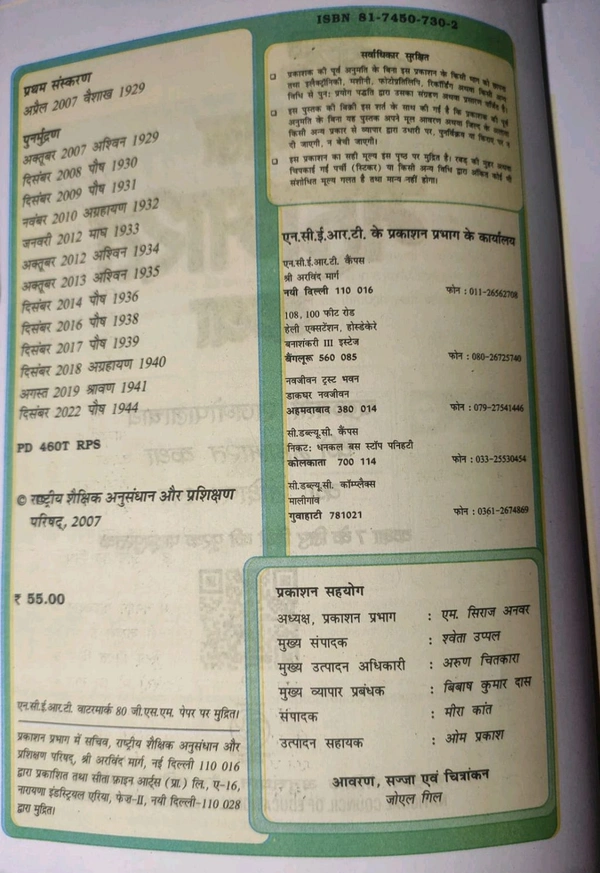 ISBN 81-7450-730-2
प्रथम संस्करण
अप्रैल 2007 वैशाख 1929
पुनर्मुद्रण
अक्तूबर 2007 अश्विन 1929
दिसंबर 2008 पौष 1930
दिसंबर 2009 पौष 1931
नवंबर 2010 अग्रहायण 1932
जनवरी 2012 माघ 1933
अक्तूबर 2012 अश्विन 1934
अक्तूबर 2013 अश्विन 1935
दिसंबर 2014 पौष 1936
दिसंबर 2016 पौष 1938
दिसंबर 2017 पौष 1939
दिसंबर 2018 अग्रहायण 1940
अगस्त 2019 श्रावण 1941
दिसंबर 2022 पौष 1944
PD 460T RPS
© राष्ट्रीय शैक्षिक अनुसंधान और प्रशिक्षण
परिषद्, 2007
₹ 55.00
एन.सी.ई.आर.टी. वाटरमार्क 80 जी.एस.एम. पेपर पर मुद्रित।
प्रकाशन प्रभाग में सचिव, राष्ट्रीय शैक्षिक अनुसंधान और
प्रशिक्षण परिषद्, श्री अरविंद मार्ग, नई दिल्ली 110 016
द्वारा प्रकाशित तथा सीता फ़ाइन आर्ट्स (प्रा.) लि., ए-16,
नारायणा इंडस्ट्रियल एरिया, फेज-II, नयी दिल्ली-110 028
द्वारा मुद्रित।
सर्वाधिकार सुरक्षित
प्रकाशक की पूर्व अनुमति के बिना इस प्रकाशन के किसी भाग को छापना
तथा इलैक्ट्रॉनिकी, मशीनी, फोटोप्रतिलिपि, रिकॉर्डिंग अथवा किसी अन्य
विधि से पुन: प्रयोग पद्धति द्वारा उसका संग्रहण अथवा प्रसारण वर्जित है।
इस पुस्तक की बिक्री इस शर्त के साथ की गई है कि प्रकाशक की पूर्व
अनुमति के बिना यह पुस्तक अपने मूल आवरण अथवा जिल्द के अलावा
किसी अन्य प्रकार से व्यापार द्वारा उधारी पर, पुनर्विक्रय या किराए पर न
दी जाएगी, न बेची जाएगी।
इस प्रकाशन का सही मूल्य इस पृष्ठ पर मुद्रित है। रबड़ की मुहर अथवा
चिपकाई गई पर्ची (स्टिकर) या किसी अन्य विधि द्वारा अंकित कोई भी
संशोधित मूल्य गलत है तथा मान्य नहीं होगा।
एन.सी.ई.आर.टी. के प्रकाशन प्रभाग के कार्यालय
एन.सी.ई.आर.टी. कैंपस
श्री अरविंद मार्ग
नयी दिल्ली 110 016 फोन : 011-26562708
108, 100 फीट रोड
हेली एक्सटेंशन, होस्डेकेरे
बनाशंकरी III इस्टेज
बैंगलूरू 560 085 फोन : 080-26725740
नवजीवन ट्रस्ट भवन
डाकघर नवजीवन
अहमदाबाद 380 014 फोन : 079-27541446
सी.डब्ल्यू.सी. कैंपस
निकट: धनकल बस स्टॉप पनिहटी
कोलकाता 700 114 फोन : 033-25530454
सी.डब्ल्यू.सी. कॉम्प्लैक्स
मालीगांव
गुवाहाटी 781021 फोन : 0361-2674869
प्रकाशन सहयोग
अध्यक्ष, प्रकाशन प्रभाग : एम. सिराज अनवर
मुख्य संपादक : श्वेता उप्पल
मुख्य उत्पादन अधिकारी : अरुण चितकारा
मुख्य व्यापार प्रबंधक : बिबाष कुमार दास
संपादक : मीरा कांत
उत्पादन सहायक : ओम प्रकाश
आवरण, सज्जा एवं चित्रांकन
जोएल गिल